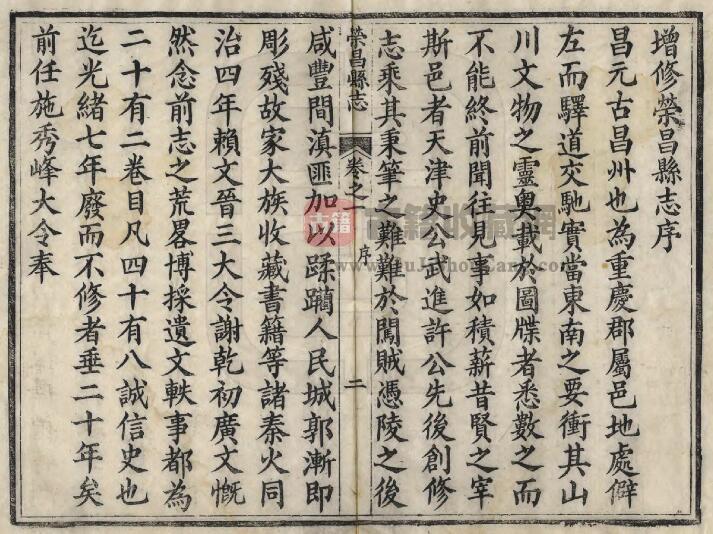 增修榮昌縣志序
昌元古昌州也為重慶郡屬邑地處僻
左而驛道交馳實當東南之要衝其山
川文物之靈奧載於圖牒者悉數之而
不能終前聞往見事如積薪昔賢之宰
斯邑者天津史公武進許公先後創修
志乘其秉筆之難難於闖賊憑陵之後
榮昌縣志 卷之一 序 二
咸豐間滇匪加以蹂躪人民城郭漸即
彫殘故家大族收藏書籍等諸秦火同
治四年賴文晉三大令謝乾初廣文慨
然念前志之荒畧博採遺文軼事都為
二十有二卷目凡四十有八誠信史也
迄光緒七年廢而不修者垂二十年矣
前任施秀峰大令奉
古籍
古籍收藏网